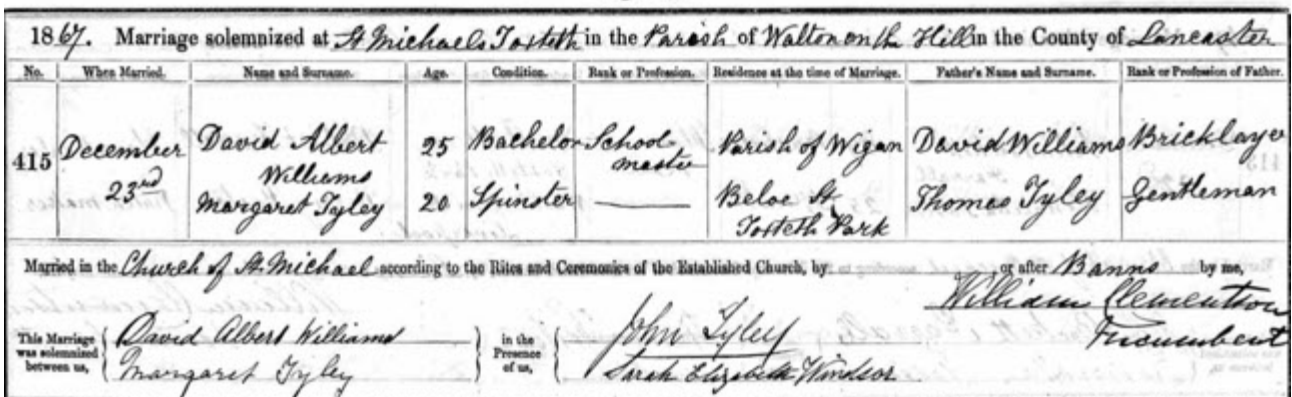 1867. Marriage solemnized at St Michaels Toxteth in the Parish of Walton on the Hill in the County of Lancaster
No. When Married. Name and Surname. Age. Condition. Rank or Profession. Residence at the time of Marriage. Father's Name and Surname. Rank or Profession of Father.
415 December 23rd David Albert Williams 25 Bachelor School master Parish of Wigan David Williams Bricklayer
Margaret Tyley 20 Spinster Beloe St Toxteth Park Thomas Tyley Gentleman
Married in the Church of St. Michael according to the Rites and Ceremonies of the Established Church, by or after Banns by me,
William Clementson
Incumbent
This Marriage was solemnized between us, David Albert Williams
Margaret Tyley
in the Presence of us, John Tyley
Sarah Elizabeth Windsor